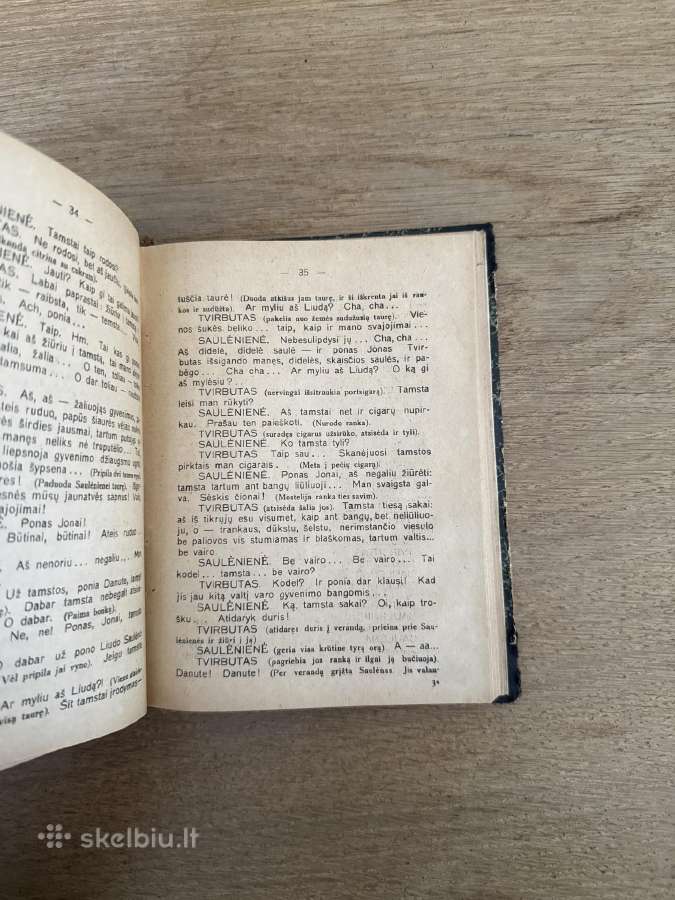 — 34 —
NIENĖ. Tamstai taip rodos?
TAS. Ne rodosi, bet aš jaučiu,
NIENĖ. Jauti? Kaip gi tai
AS. Labai paprastai: žiūriu į
čik — raibsta, tik — temsta...
Ach, ponia...
NĖ. Taip. Hm. Tai kas gi
kai aš žiūriu į tamstą, tai man
alia, žalia... O ten, toliau —
tamsuma... O dar toliau —
S. Aš, aš — žaliuojąs gyvenimo,
steis ruduo, papūs šiaurės vėjas
širdies jausmai, tartum
manęs neliks nė truputėlio...
liepsnoja gyvenimo džiaugsmo
šypsena... (Pripila
res! (Paduoda Saulėnienei taurę).
esnės mūsų jaunatvės sapnus!
vajojimai!
Ė. Ponas Jonai!
Būtinai, būtinai! Ateis ruduo...
Aš nenoriu... negaliu... Man
Už tamstos, ponia Danute,
Dabar tamsta nebegali
O dabar. (Paima bonką).
Ne, ne! Ponas, Jonai, tamsta
O dabar už pono Liudo Saulėno
Vėl pripila jai vyno). Jeigu tamsta
Ar myliu aš Liudą?!
visą taurę). Šit tamstai įrodymas—
— 35 —
tuščia taurė! (Duoda atkišus jam taurę, ir ši iškrenta jai iš ran-
kos ir sudūžta). Ar myliu aš Liudą? Cha, cha...
TVIRBUTAS (pakelia nuo žemės sudužusią taurę). Vie-
nos šukės beliko... taip, kaip ir mano svajojimai...
SAULĖNIENĖ. Nebesulipdysi jų... Cha, cha...
Aš didelė, didelė saulė — ir ponas Jonas Tvir-
butas išsigando manęs, didelės, skaisčios saulės, ir pa-
bėgo... Cha cha... Ar myliu aš Liudą? O ką gi
aš mylėsiu?...
TVIRBUTAS (nervingai išsitraukia portsigarą). Tamsta
leisi man rūkyti?
SAULĖNIENĖ. Aš tamstai net ir cigarų nupir-
kau. Prašau ten paieškoti. (Nurodo ranka).
TVIRBUTAS (suradęs cigarus užsirūko, atsisėda ir tyli).
SAULĖNIENĖ. Ko tamsta tyli?
TVIRBUTAS Taip sau... Skanėjuosi tamstos
pirktais man cigarais... (Meta į pečių cigarą).
SAULĖNIENĖ. Ponas Jonai, aš negaliu žiūrėti:
tamsta tartum ant bangų liūliuoji... Man svaigsta gal-
va. Sėskis čionai! (Mostelija ranka ties savim).
TVIRBUTAS (atsisėda šalia jos). Tamsta tiesą sakai:
aš iš tikrųjų esu visumet, kaip ant bangų, bet neliūliuo-
jų, o — trankaus, dūkstu, šelstu, nerimstančio viesulo
be paliovos vis stumiamas ir blaškomas, tartum valtis...
be vairo.
SAULĖNIENĖ. Be vairo... Be vairo... Tai
kodėl... tamsta... be vairo?
TVIRBUTAS. Kodėl? Ir ponia dar klausi! Kad
jis jau kitą valtį varo gyvenimo bangomis...
SAULĖNIENĖ. Ką, tamsta sakai? Oi, kaip tro-
šku... Atidaryk duris!
TVIRBUTAS (atidaręs duris į verandą, prieina prie Sau-
lėnienės ir žiūri į ją).
SAULĖNIENĖ (geria visa krūtine tyrą orą). A — aa...
TVIRBUTAS (pagriebia jos ranką ir ilgai ją bučiuoja).
Danute! Danute! (Per verandą grįžta Saulėnas. Jis valan-
3*
skelbiu.lt